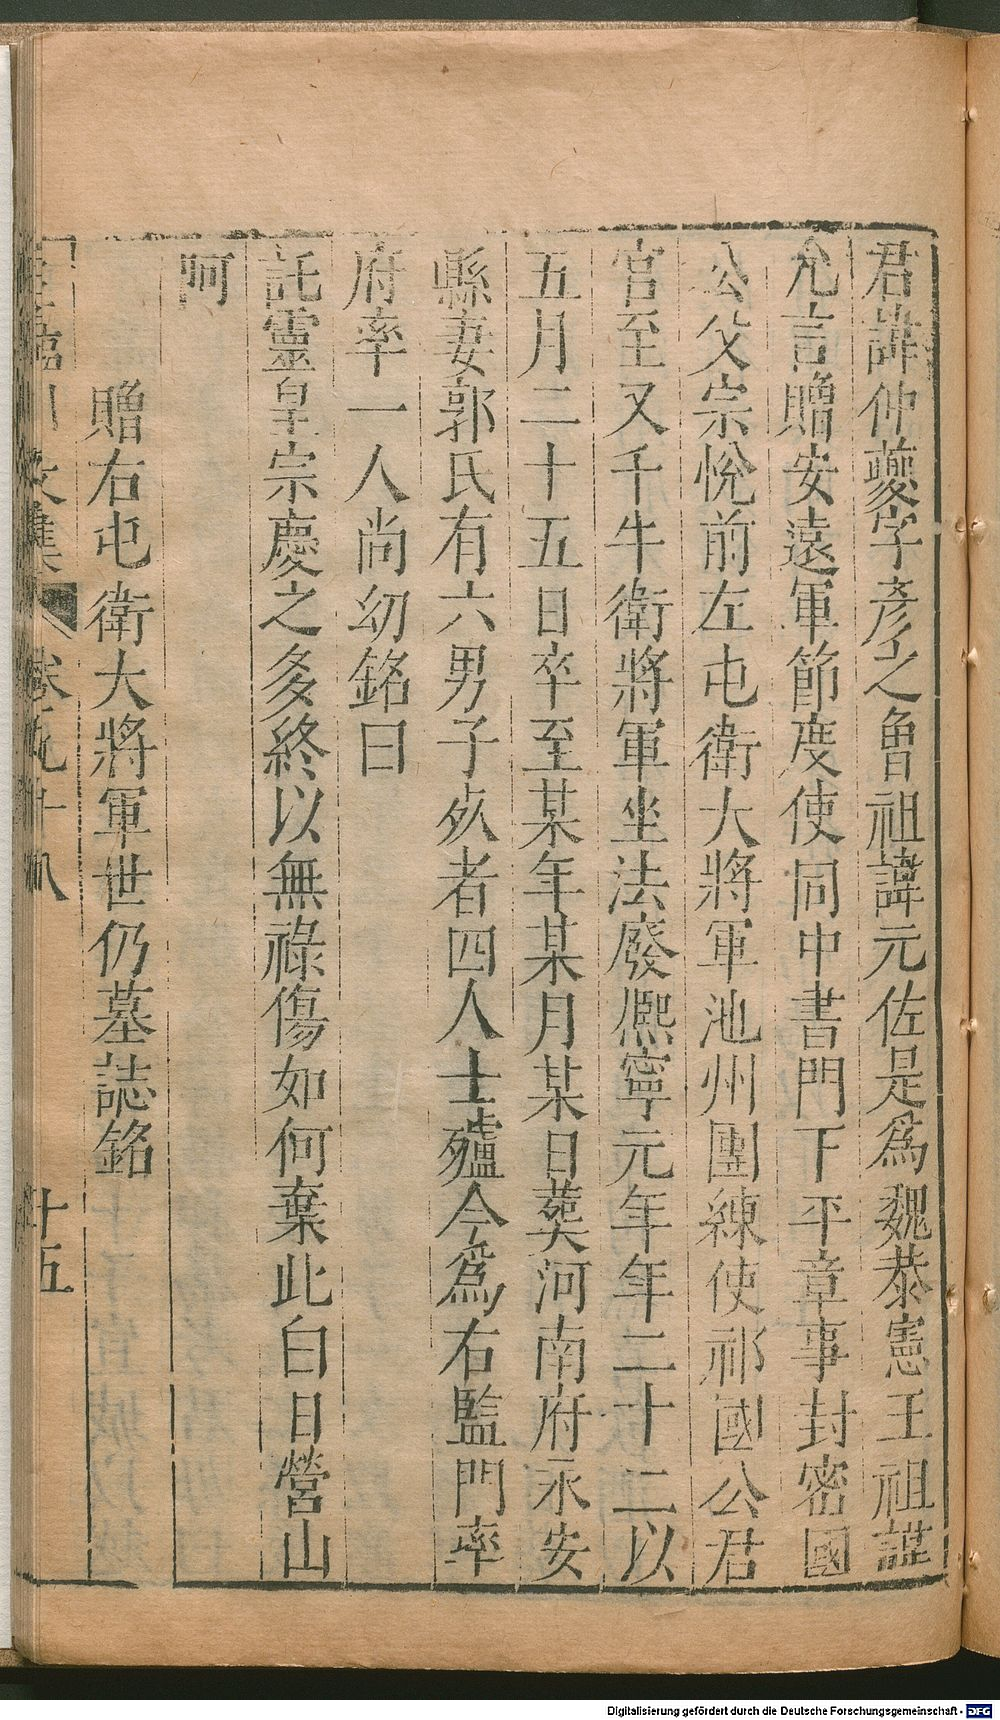 君諱仲夔字彥之曾祖諱元佐是爲魏恭憲王祖諱
允言贈安遠軍節度使同中書門下平章事封密國
公父宗悅前左屯衛大將軍池州團練使祁國公君
官至又千牛衛將軍坐法廢熙寧元年年二十二以
五月二十五日卒至某年某月某日葬河南府永安
縣妻郭氏有六男子㱙者四人士㱺今爲右監門率
府率一人尚幼銘曰
託靈皇宗慶之多終以無祿傷如何棄此白日營山
阿
贈右屯衛大將軍世仍墓誌銘
王臨川文集 卷九十八 十五
Digitalisierung gefördert durch die Deutsche Forschungsgemeinschaft - DFG